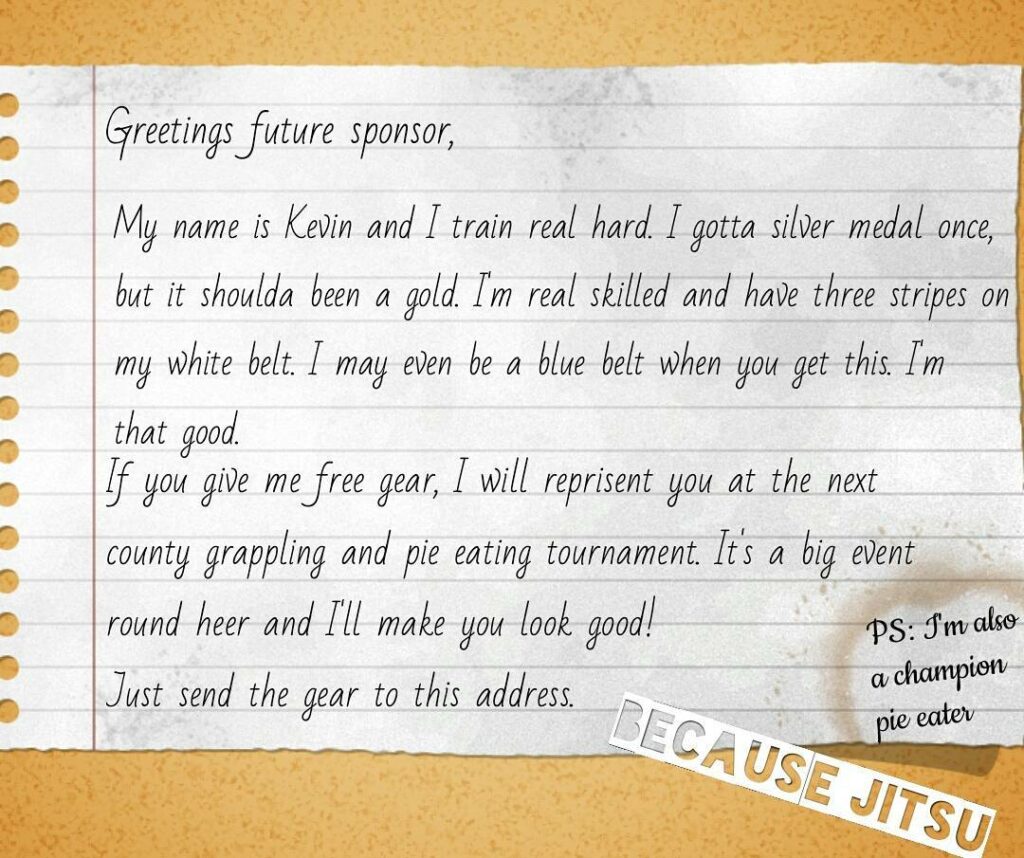 Greetings future sponsor,
My name is Kevin and I train real hard. I gotta silver medal once,
but it shoulda been a gold. I'm real skilled and have three stripes on
my white belt. I may even be a blue belt when you get this. I'm
that good.
If you give me free gear, I will reprisent you at the next
county grappling and pie eating tournament. It's a big event
round heer and I'll make you look good!
Just send the gear to this address.
PS: I'm also
a champion
pie eater
BECAUSE JITSU